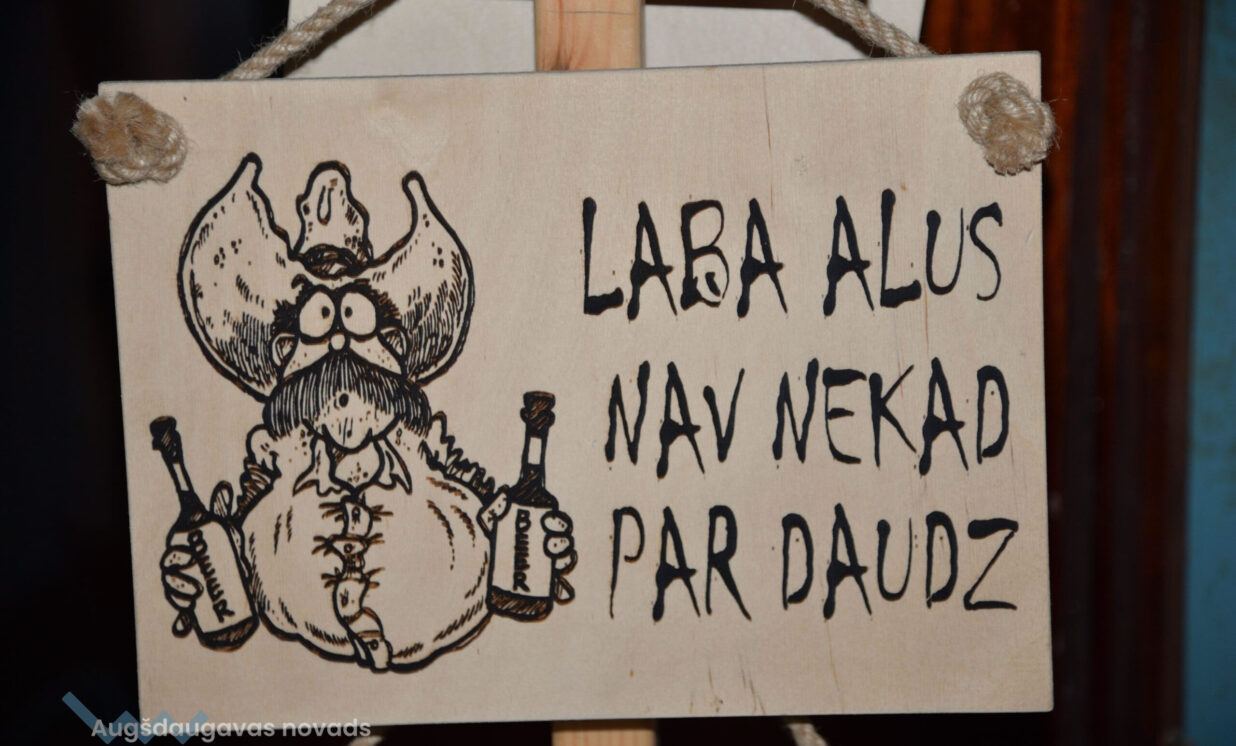 LABA ALUS
NAV NEKAD
PAR DAUDZ
Augšdaugavas novads